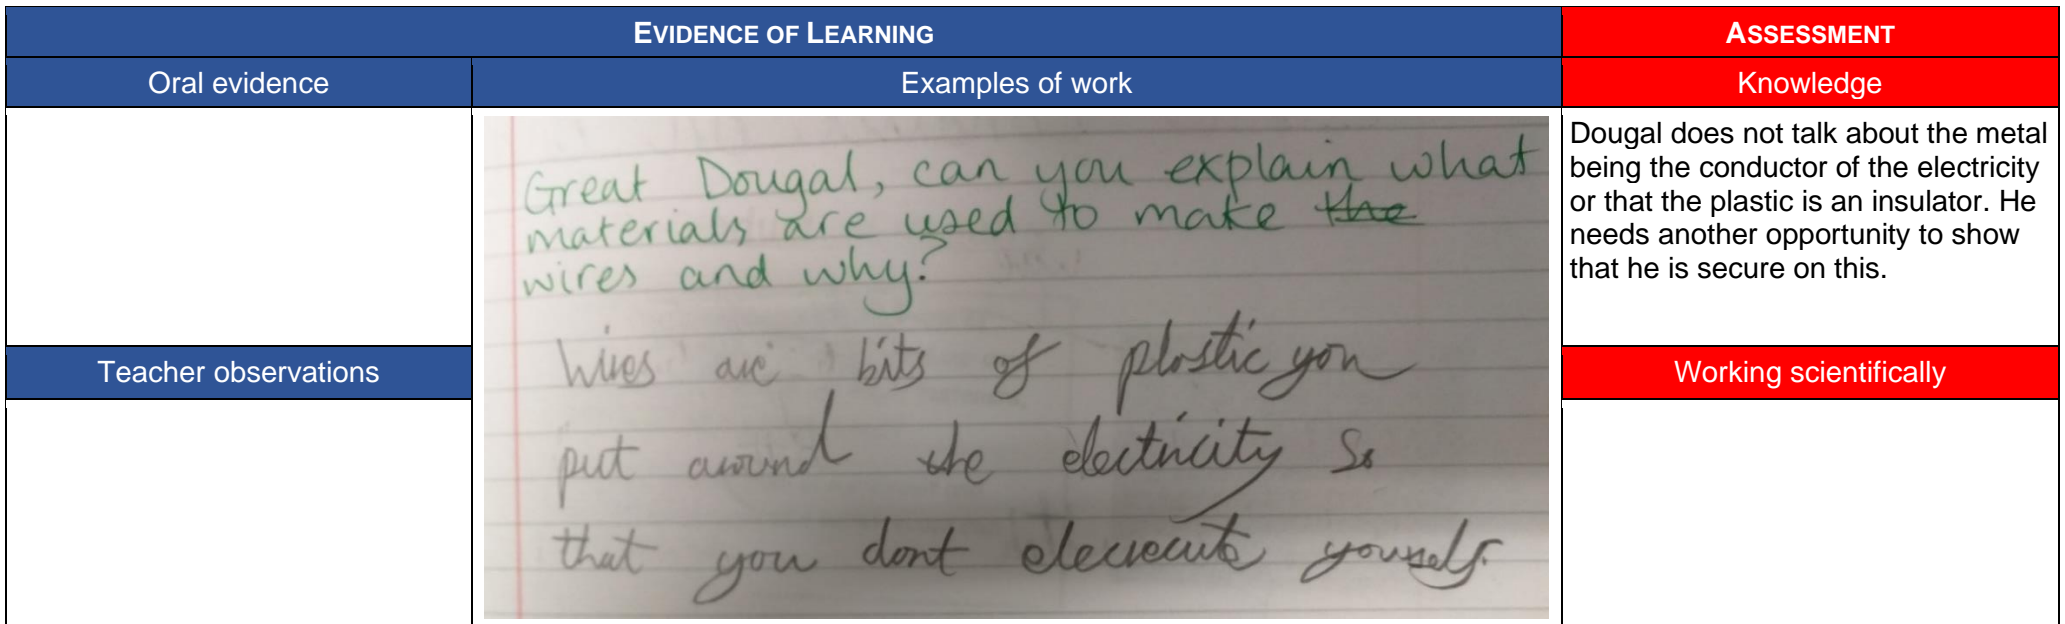 EVIDENCE OF LEARNING
ASSESSMENT
Oral evidence
Examples of work
Knowledge
Great Dougal, can you explain what
materials are used to make the
wires and why?
Wires are bits of plastic you
put around the electricity so
that you dont elecrecute yourself.
Dougal does not talk about the metal
being the conductor of the electricity
or that the plastic is an insulator. He
needs another opportunity to show
that he is secure on this.
Teacher observations
Working scientifically